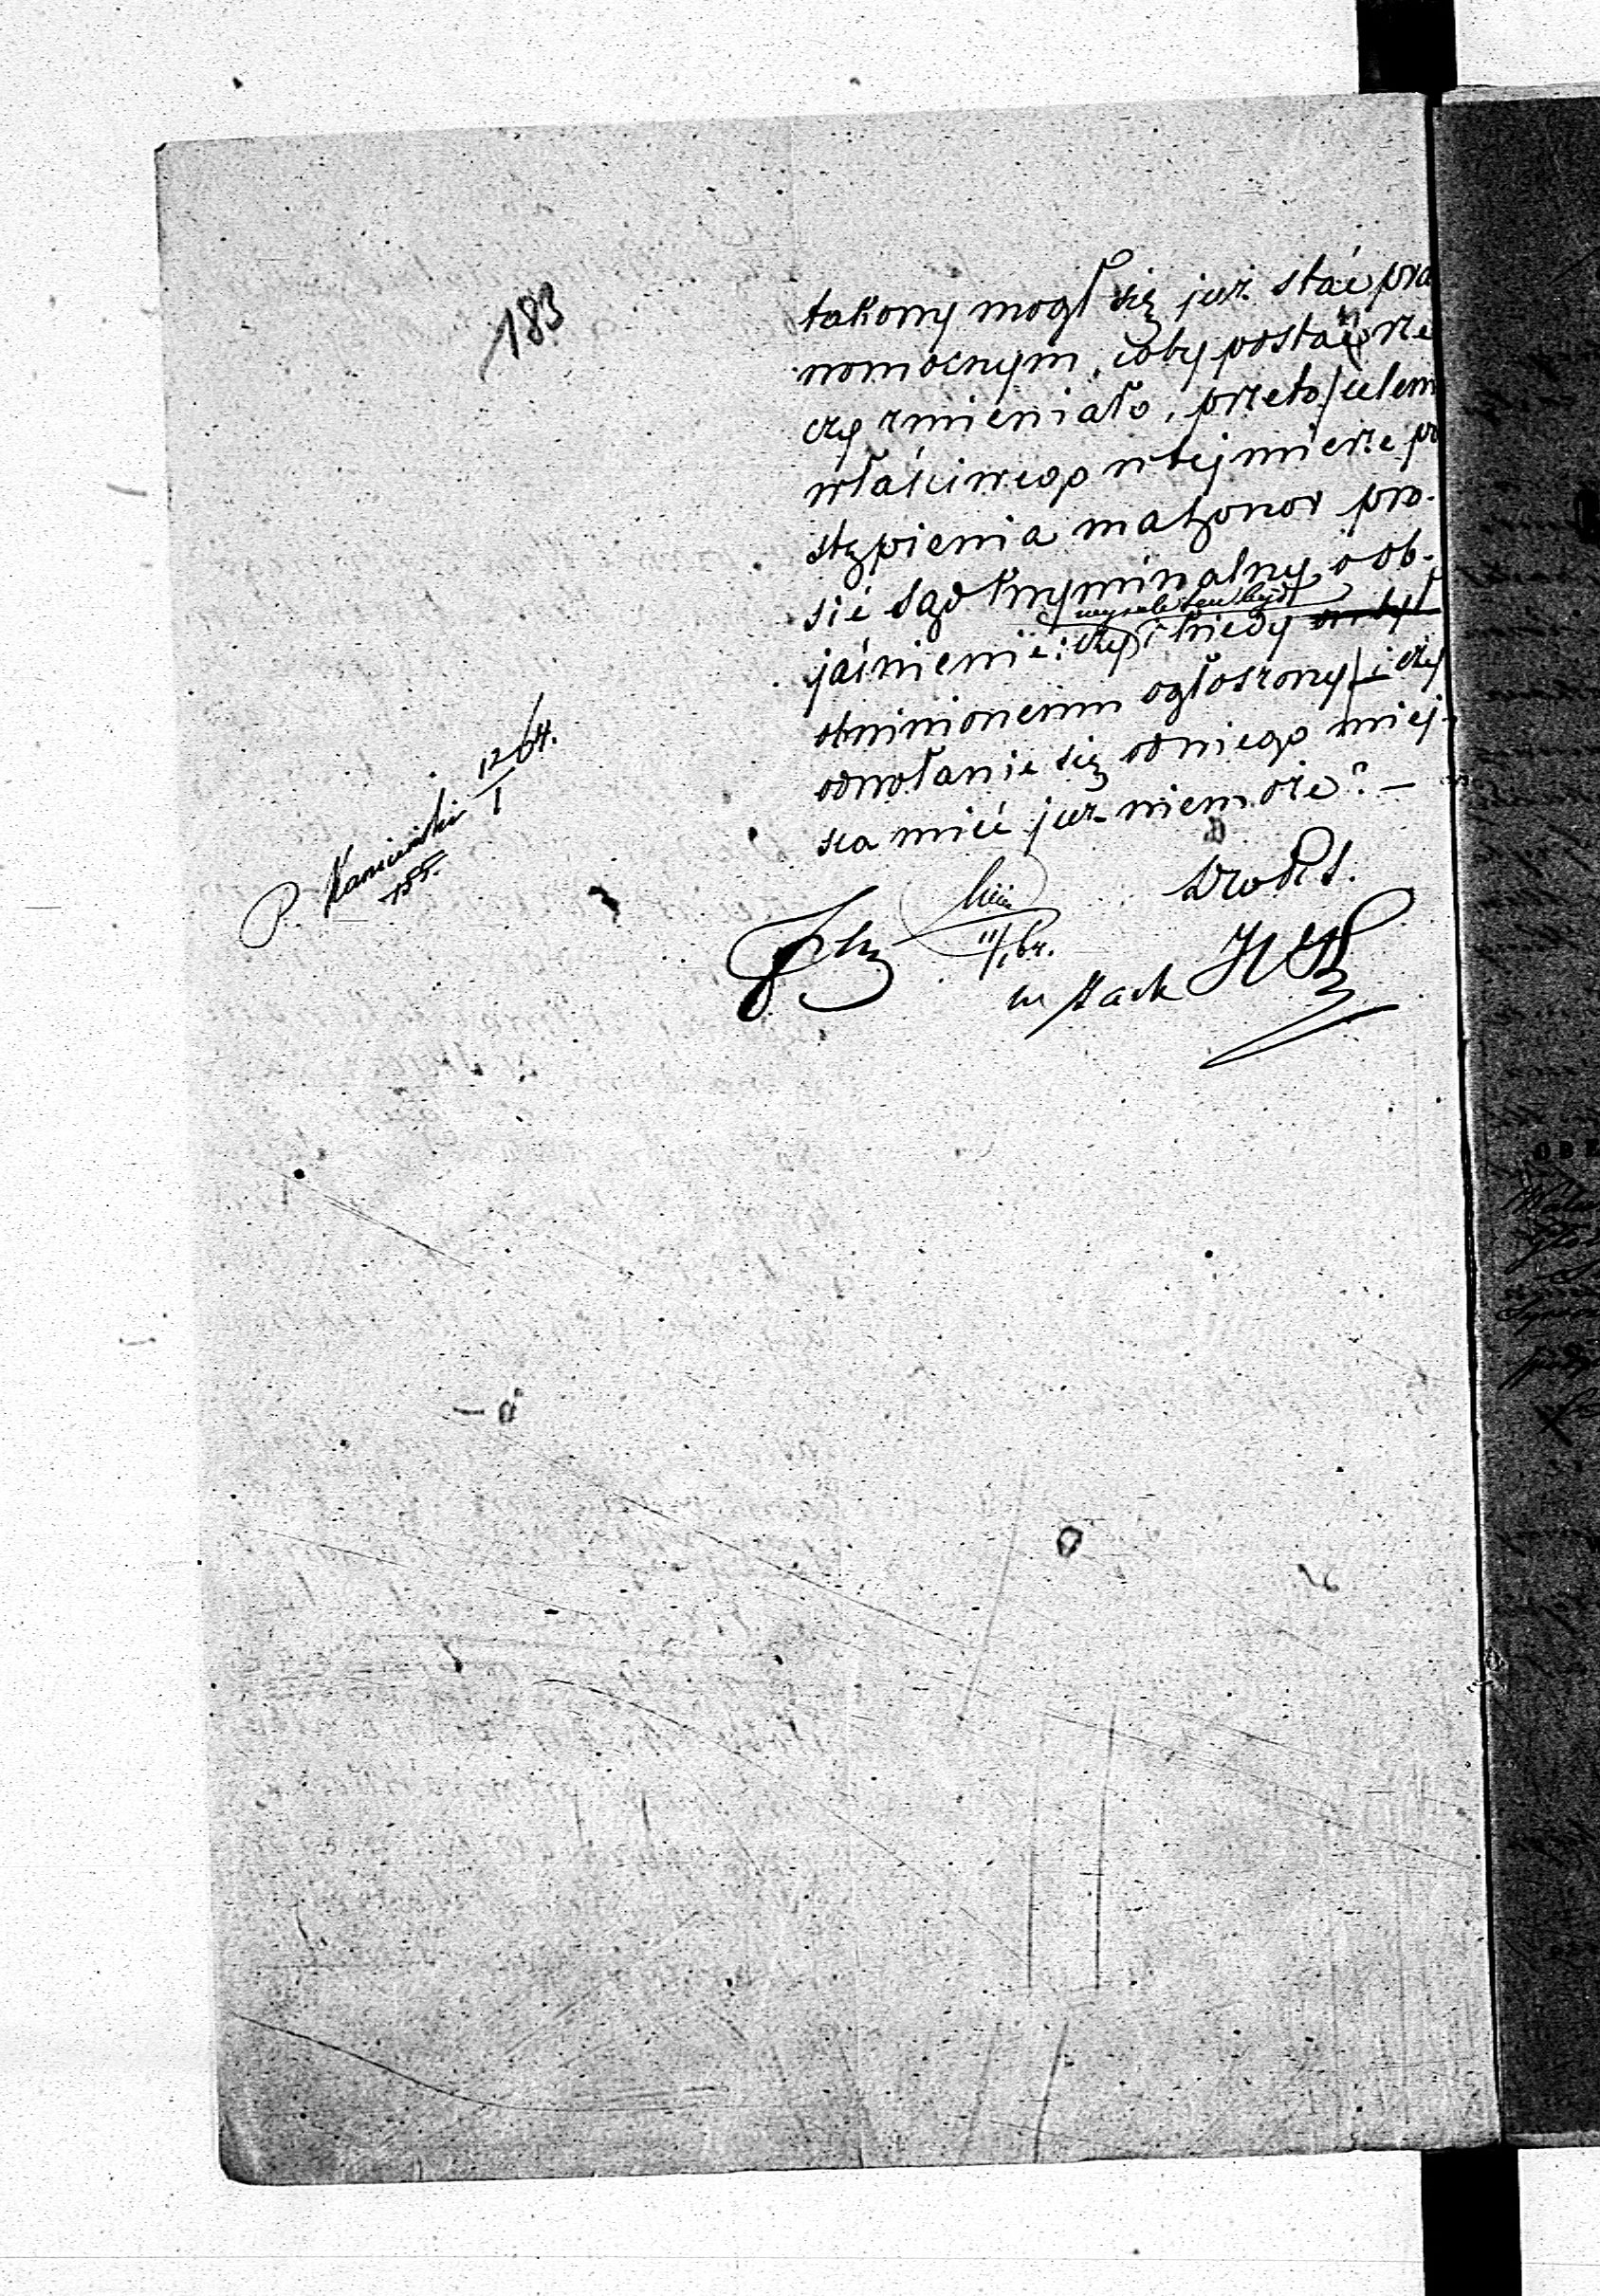 183
takowy mogł się już stać pra
womocnym, coby postać rze
czy zmieniało, przeto celem
właściwego w tej mierze po
stąpienia ma honor pro-
sić Sąd Kryminalny o ob-
jaśnienie: czy i kiedy
wyrok ten był
obwinionemu ogłoszony i czy
odwołanie się od niego miej-
sca mieć już niemoże? —
P. Kanicński 12/1 64.
155.
11/1 64.